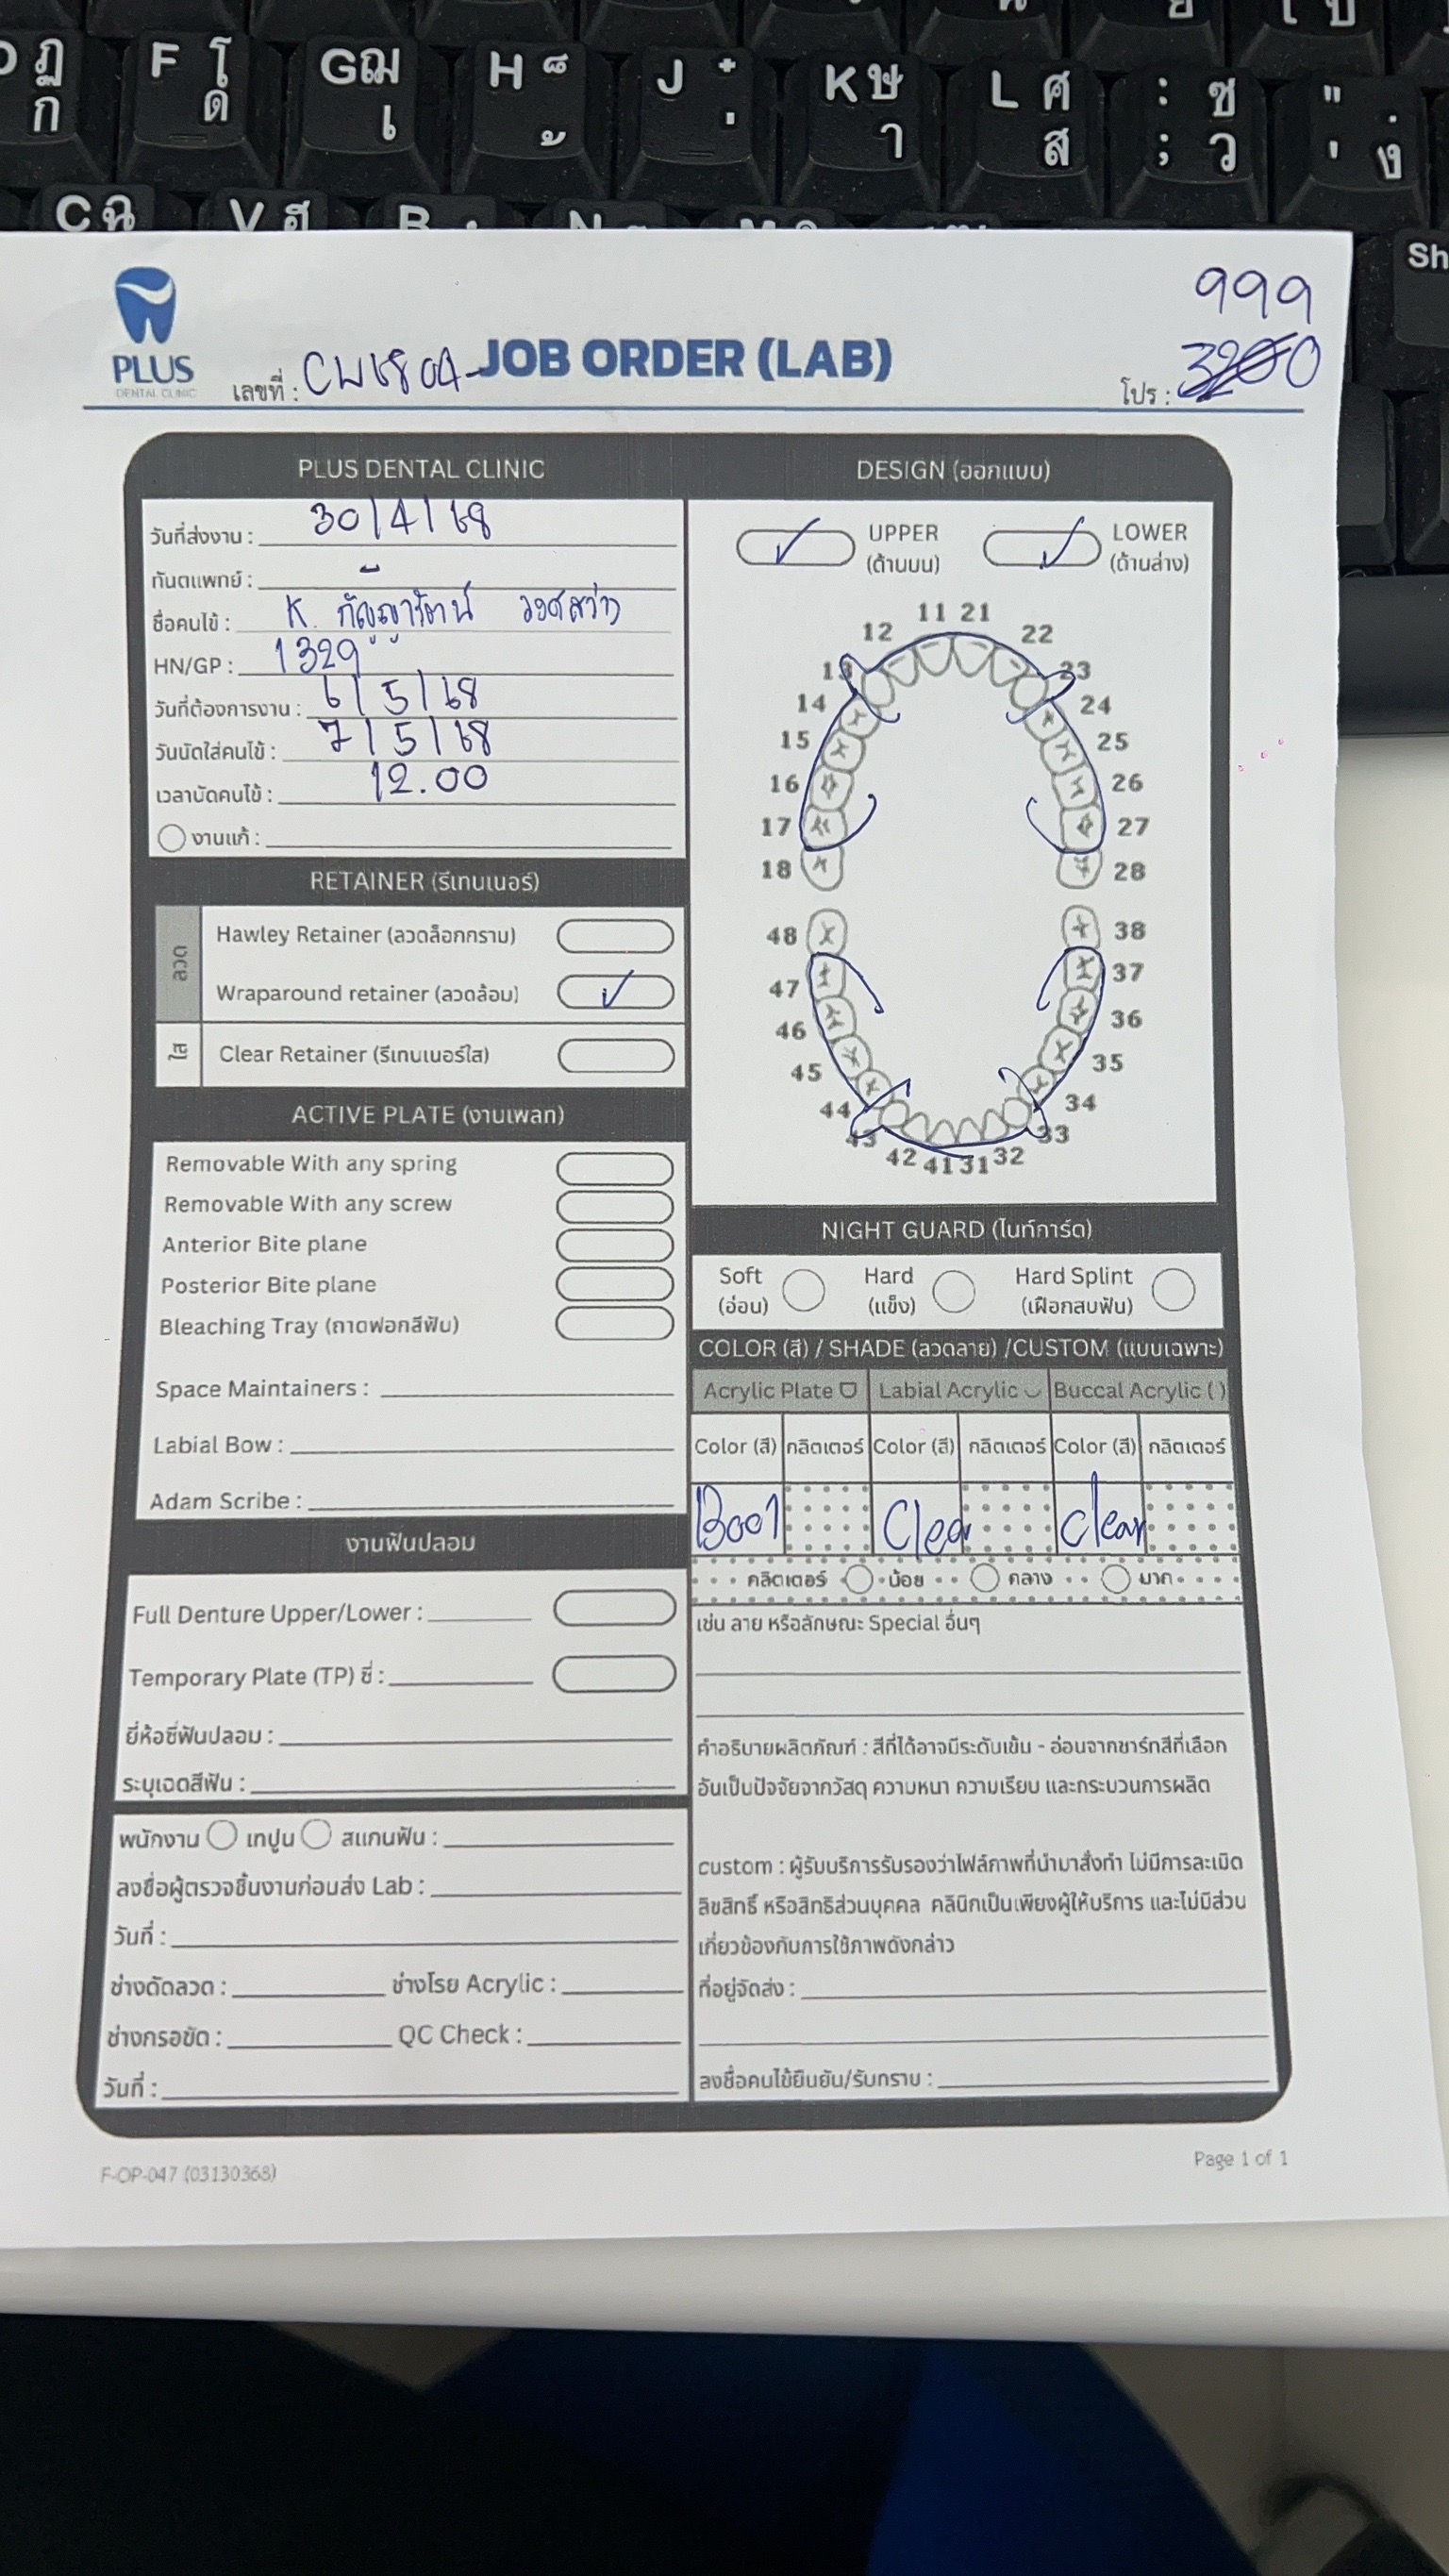 ฏ
ก
F โ
ด
Gฌ
เ
H ็
้
J ๋
่
K ษ
า
L ศ
ส
: ซ
; ว
" .
' ง
C ฉ
V ฮ
Sh
999
PLUS
DENTAL CLINIC
เลขที่ : CW6804-
JOB ORDER (LAB)
โปร : 3200
PLUS DENTAL CLINIC
วันที่ส่งงาน : 30/4/68
ทันตแพทย์ : -
ชื่อคนไข้ : K. กัญญารัตน์ วงศ์สว่าง
HN/GP : 1329
วันที่ต้องการงาน : 6/5/68
วันนัดใส่คนไข้ : 7/5/68
เวลานัดคนไข้ : 12.00
งานแก้ :
RETAINER (รีเทนเนอร์)
ลวด
Hawley Retainer (ลวดล็อกกราม)
Wraparound retainer (ลวดล้อม)
ใส
Clear Retainer (รีเทนเนอร์ใส)
ACTIVE PLATE (งานเพลท)
Removable With any spring
Removable With any screw
Anterior Bite plane
Posterior Bite plane
Bleaching Tray (ถาดฟอกสีฟัน)
Space Maintainers :
Labial Bow :
Adam Scribe :
งานฟันปลอม
Full Denture Upper/Lower :
Temporary Plate (TP) ซี่ :
ยี่ห้อซี่ฟันปลอม :
ระบุเฉดสีฟัน :
พนักงาน เทปูน สแกนฟัน :
ลงชื่อผู้ตรวจชิ้นงานก่อนส่ง Lab :
วันที่ :
ช่างดัดลวด : ช่างโรย Acrylic :
ช่างกรอขัด : QC Check :
วันที่ :
DESIGN (ออกแบบ)
UPPER
(ด้านบน)
LOWER
(ด้านล่าง)
11 21
12 22
13 23
14 24
15 25
16 26
17 27
18 28
48 38
47 37
46 36
45 35
44 34
43 33
42 41 31 32
NIGHT GUARD (ไนท์การ์ด)
Soft
(อ่อน)
Hard
(แข็ง)
Hard Splint
(เฝือกสบฟัน)
COLOR (สี) / SHADE (ลวดลาย) /CUSTOM (แบบเฉพาะ)
Acrylic Plate Labial Acrylic Buccal Acrylic ( )
Color (สี) กลิตเตอร์ Color (สี) กลิตเตอร์ Color (สี) กลิตเตอร์
B001 Clear Clear
กลิตเตอร์ น้อย กลาง มาก
เช่น ลาย หรือลักษณะ Special อื่นๆ
คำอธิบายผลิตภัณฑ์ : สีที่ได้อาจมีระดับเข้ม - อ่อนจากชาร์ทสีที่เลือก
อันเป็นปัจจัยจากวัสดุ ความหนา ความเรียบ และกระบวนการผลิต
custom : ผู้รับบริการรับรองว่าไฟล์ภาพที่นำมาสั่งทำ ไม่มีการละเมิด
ลิขสิทธิ์ หรือสิทธิส่วนบุคคล คลินิกเป็นเพียงผู้ให้บริการ และไม่มีส่วน
เกี่ยวข้องกับการใช้ภาพดังกล่าว
ที่อยู่จัดส่ง :
ลงชื่อคนไข้ยืนยัน/รับทราบ :
F-OP-047 (03130368)
Page 1 of 1